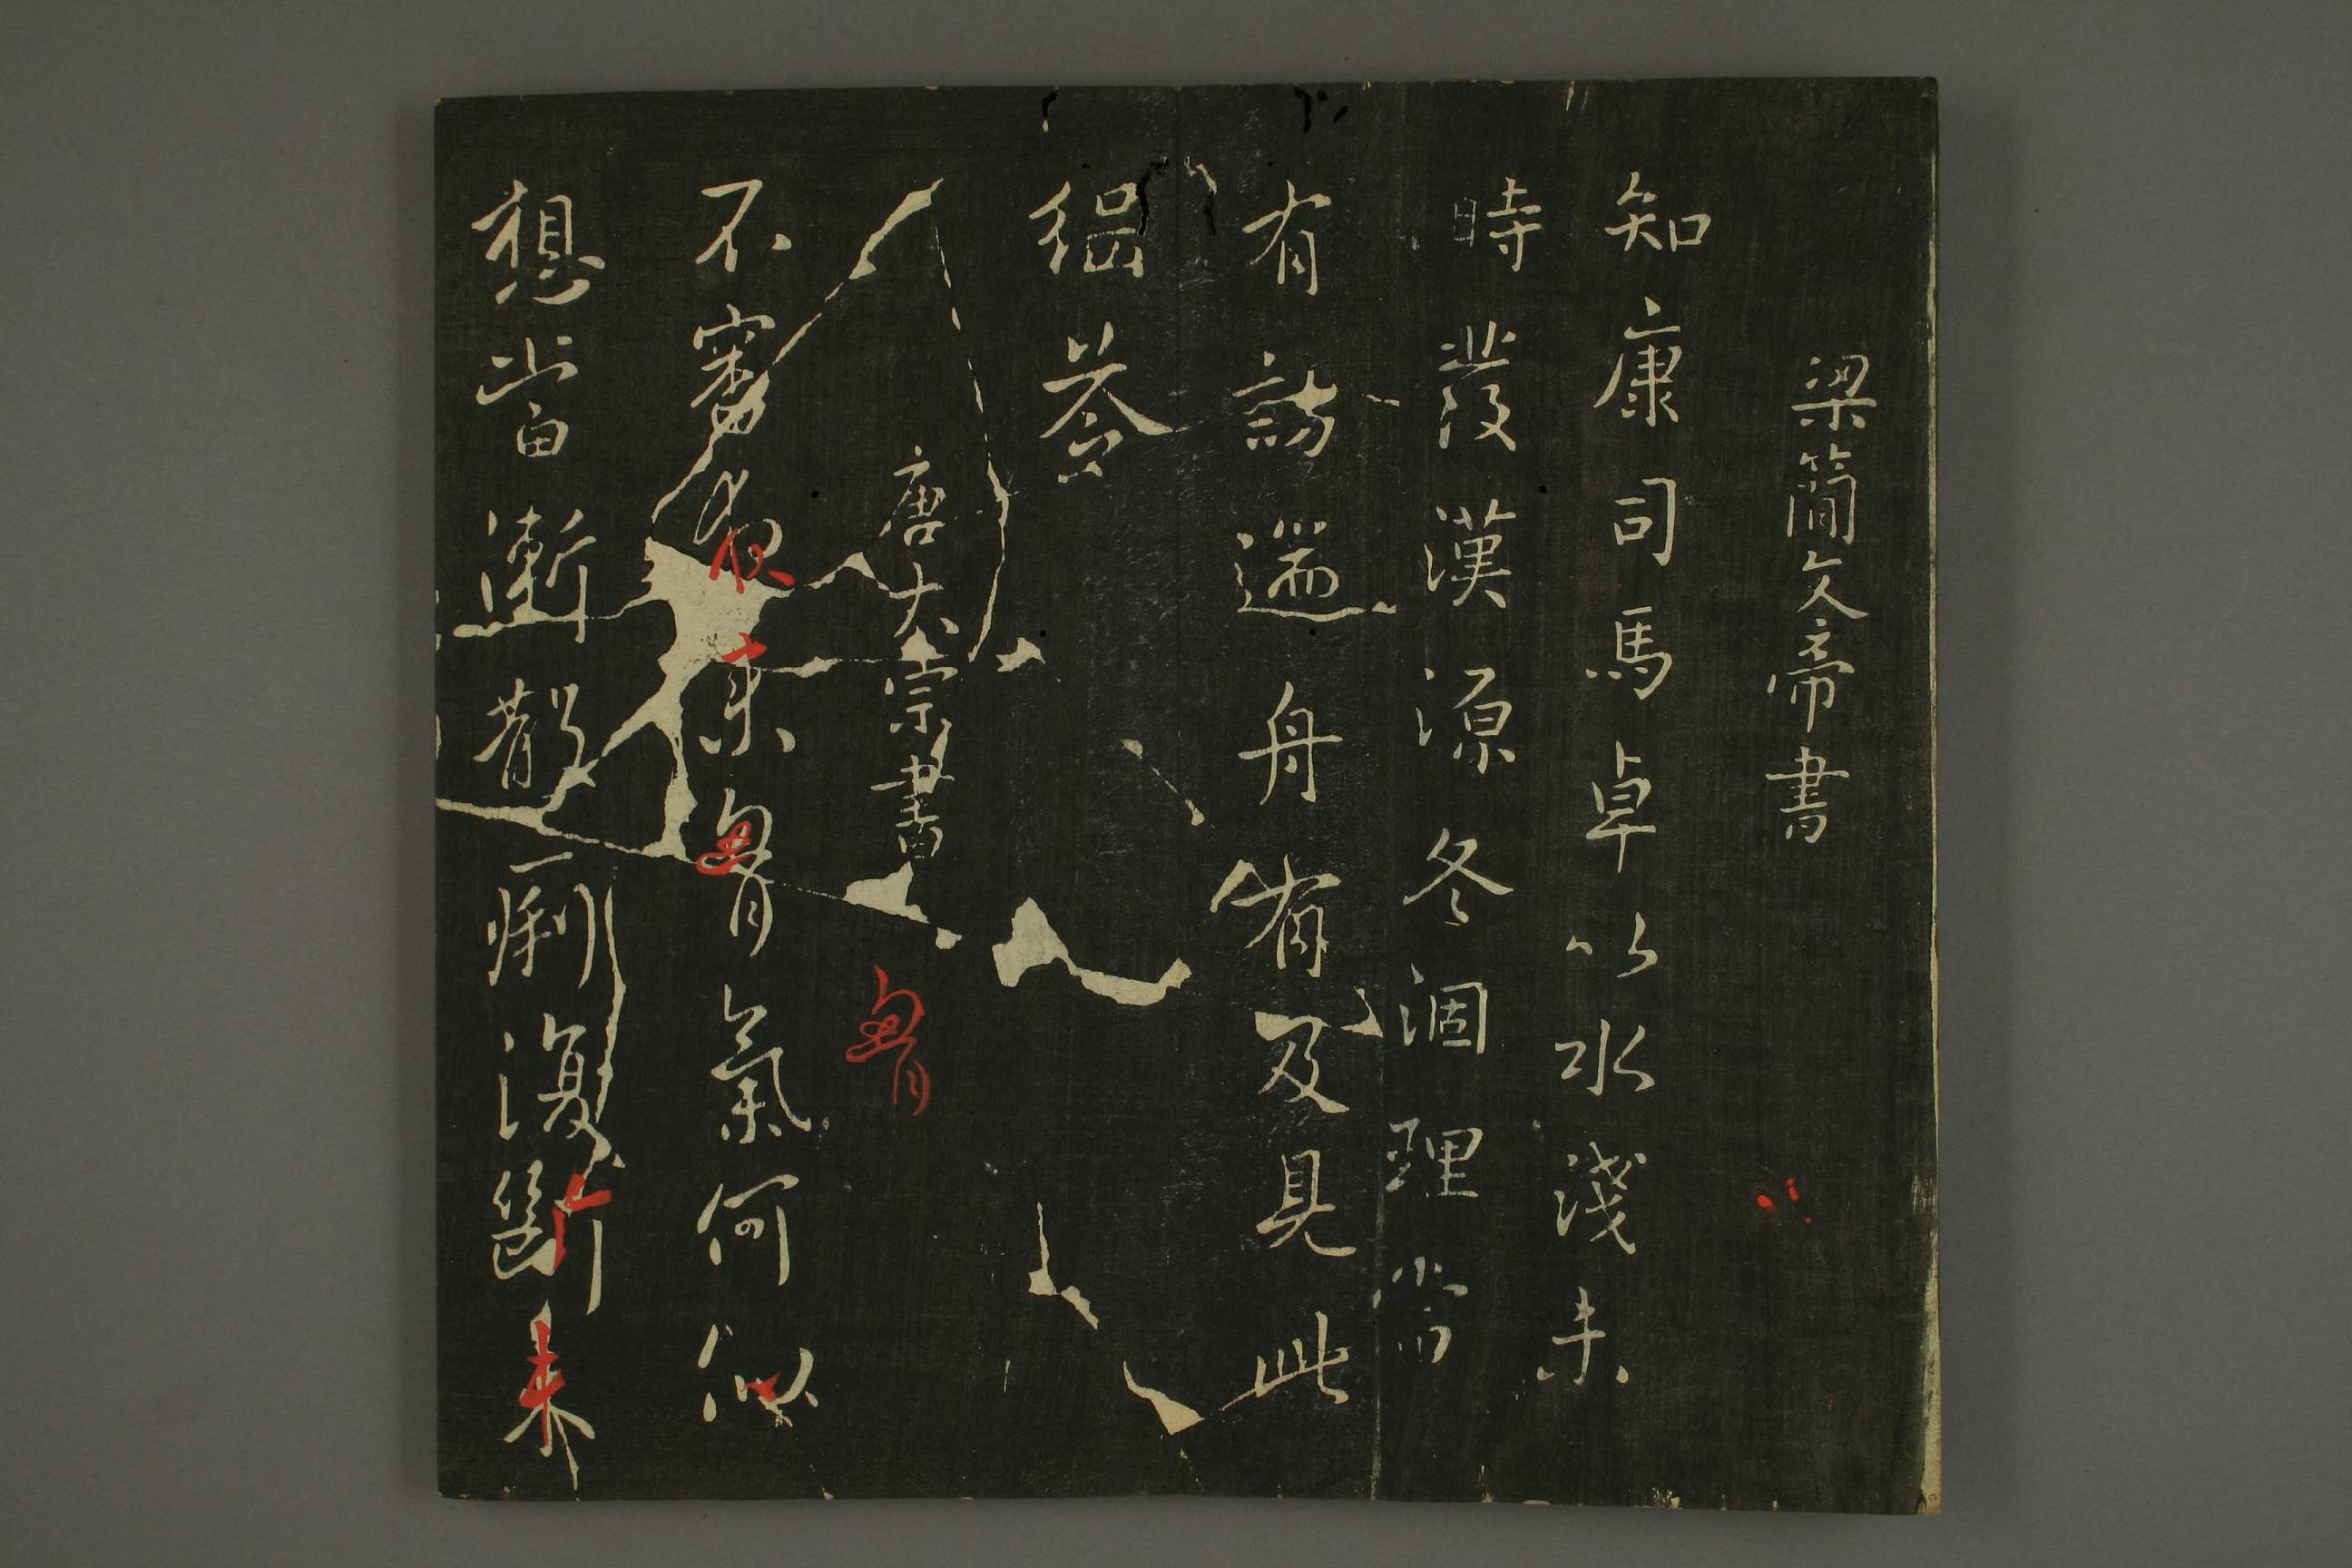 梁簡文帝書
知康司馬卓以水淺未
時發漢源冬涸理當
有訪遄舟有及見此
綱答
唐太宗書
不審夜來胷氣何似
想當漸散痢復斷來
胷